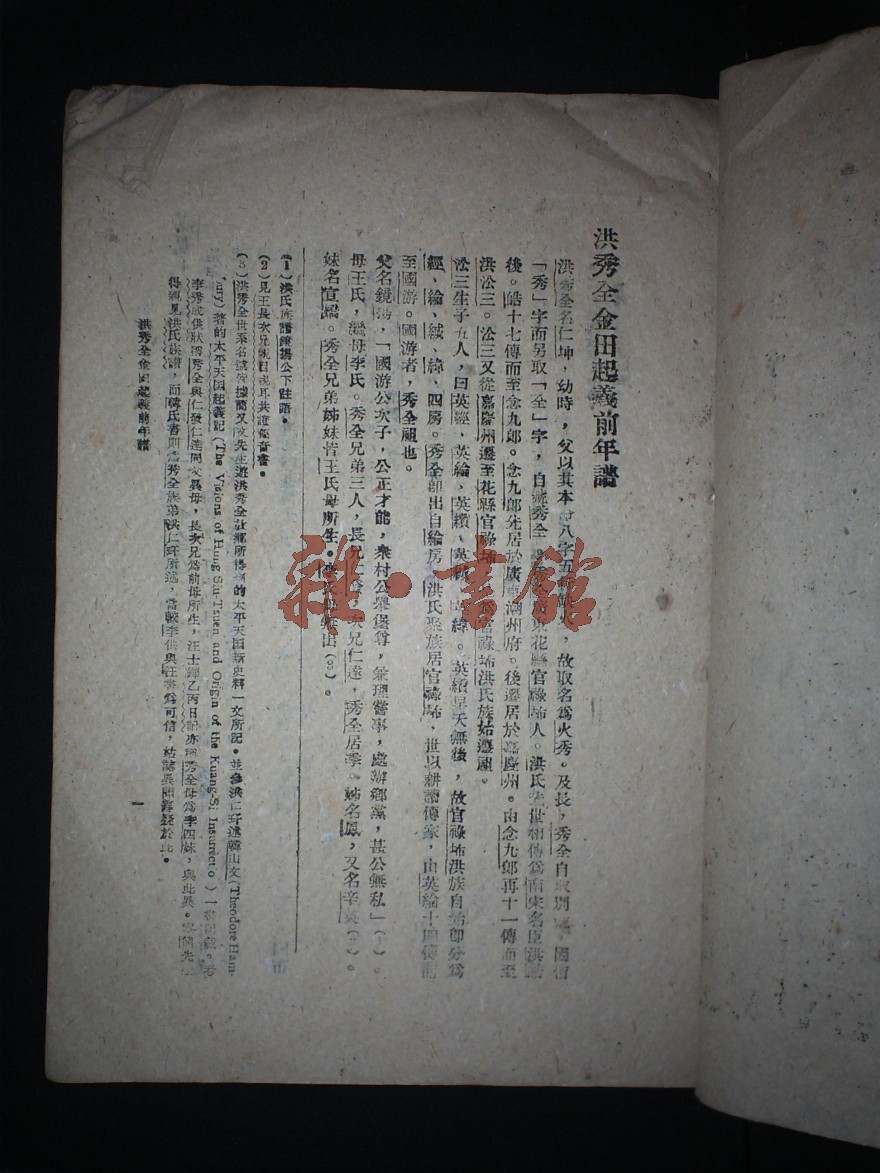 洪秀全金田起義前年譜
洪秀全名仁坤，幼時，父以其本命八字五行缺火，故取名爲火秀。及長，秀全自取別號，因留
「秀」字而另取「全」字，自號秀全。廣東花縣官祿㘵人。洪氏先世相傳爲南宋名臣洪皓
後。皓十七傳而至念九郎。念九郎先居於廣東潮州府。後遷居於嘉慶州。由念九郎再十一傳而至
洪淞三。淞三又從嘉慶州遷至花縣官祿㘵，爲官祿㘵洪氏族始遷祖。
淞三生子五人，曰英經、英綸、英纘、英緯。英纘早夭無後，故官祿㘵洪族自始即分爲
經、綸、緯、四房。秀全即出自綸房。洪氏聚族居官祿㘵，世以耕讀傳家，由英綸十四傳而
至國游。國游者，秀全祖也。
父名鏡揚，「國游公次子，公正才能，衆村公舉堡尊，兼理嘗事，處辦鄉黨，甚公無私」（1）。
母王氏，繼母李氏。秀全兄弟三人，長兄仁發，次兄仁達，秀全居季。姊名鳳，又名辛英（2）。
妹名宣嬌。秀全兄弟姊妹皆王氏母所生。李氏母無出（3）。
（1）洪氏族譜鏡揚公下註語。
（2）見王長次兄親目親耳共證福音書。
（3）洪秀全世系名號皆據簡又文先生遊洪秀全故鄉所得到的太平天国新史料一文所記。並參洪仁玕述韓山文(Theodore Ham-
burg) 著的太平天国起義記 (The Visions of Hung Siu-Tsuen and Origin of the Kuang-Si Insurrectio) 一書記載。考
李秀成供狀謂秀全與仁發仁達同父異母，長次兄爲前母所生，汪士鐸乙丙日記亦理秀全母爲李四妹，與此異。案簡先生
得親見洪氏族譜，而韓氏書則爲秀全族弟洪仁玕所述，當較李供與汪書爲可信，姑誌異同存疑於此。
洪秀全金田起義前年譜
一
雜·書館